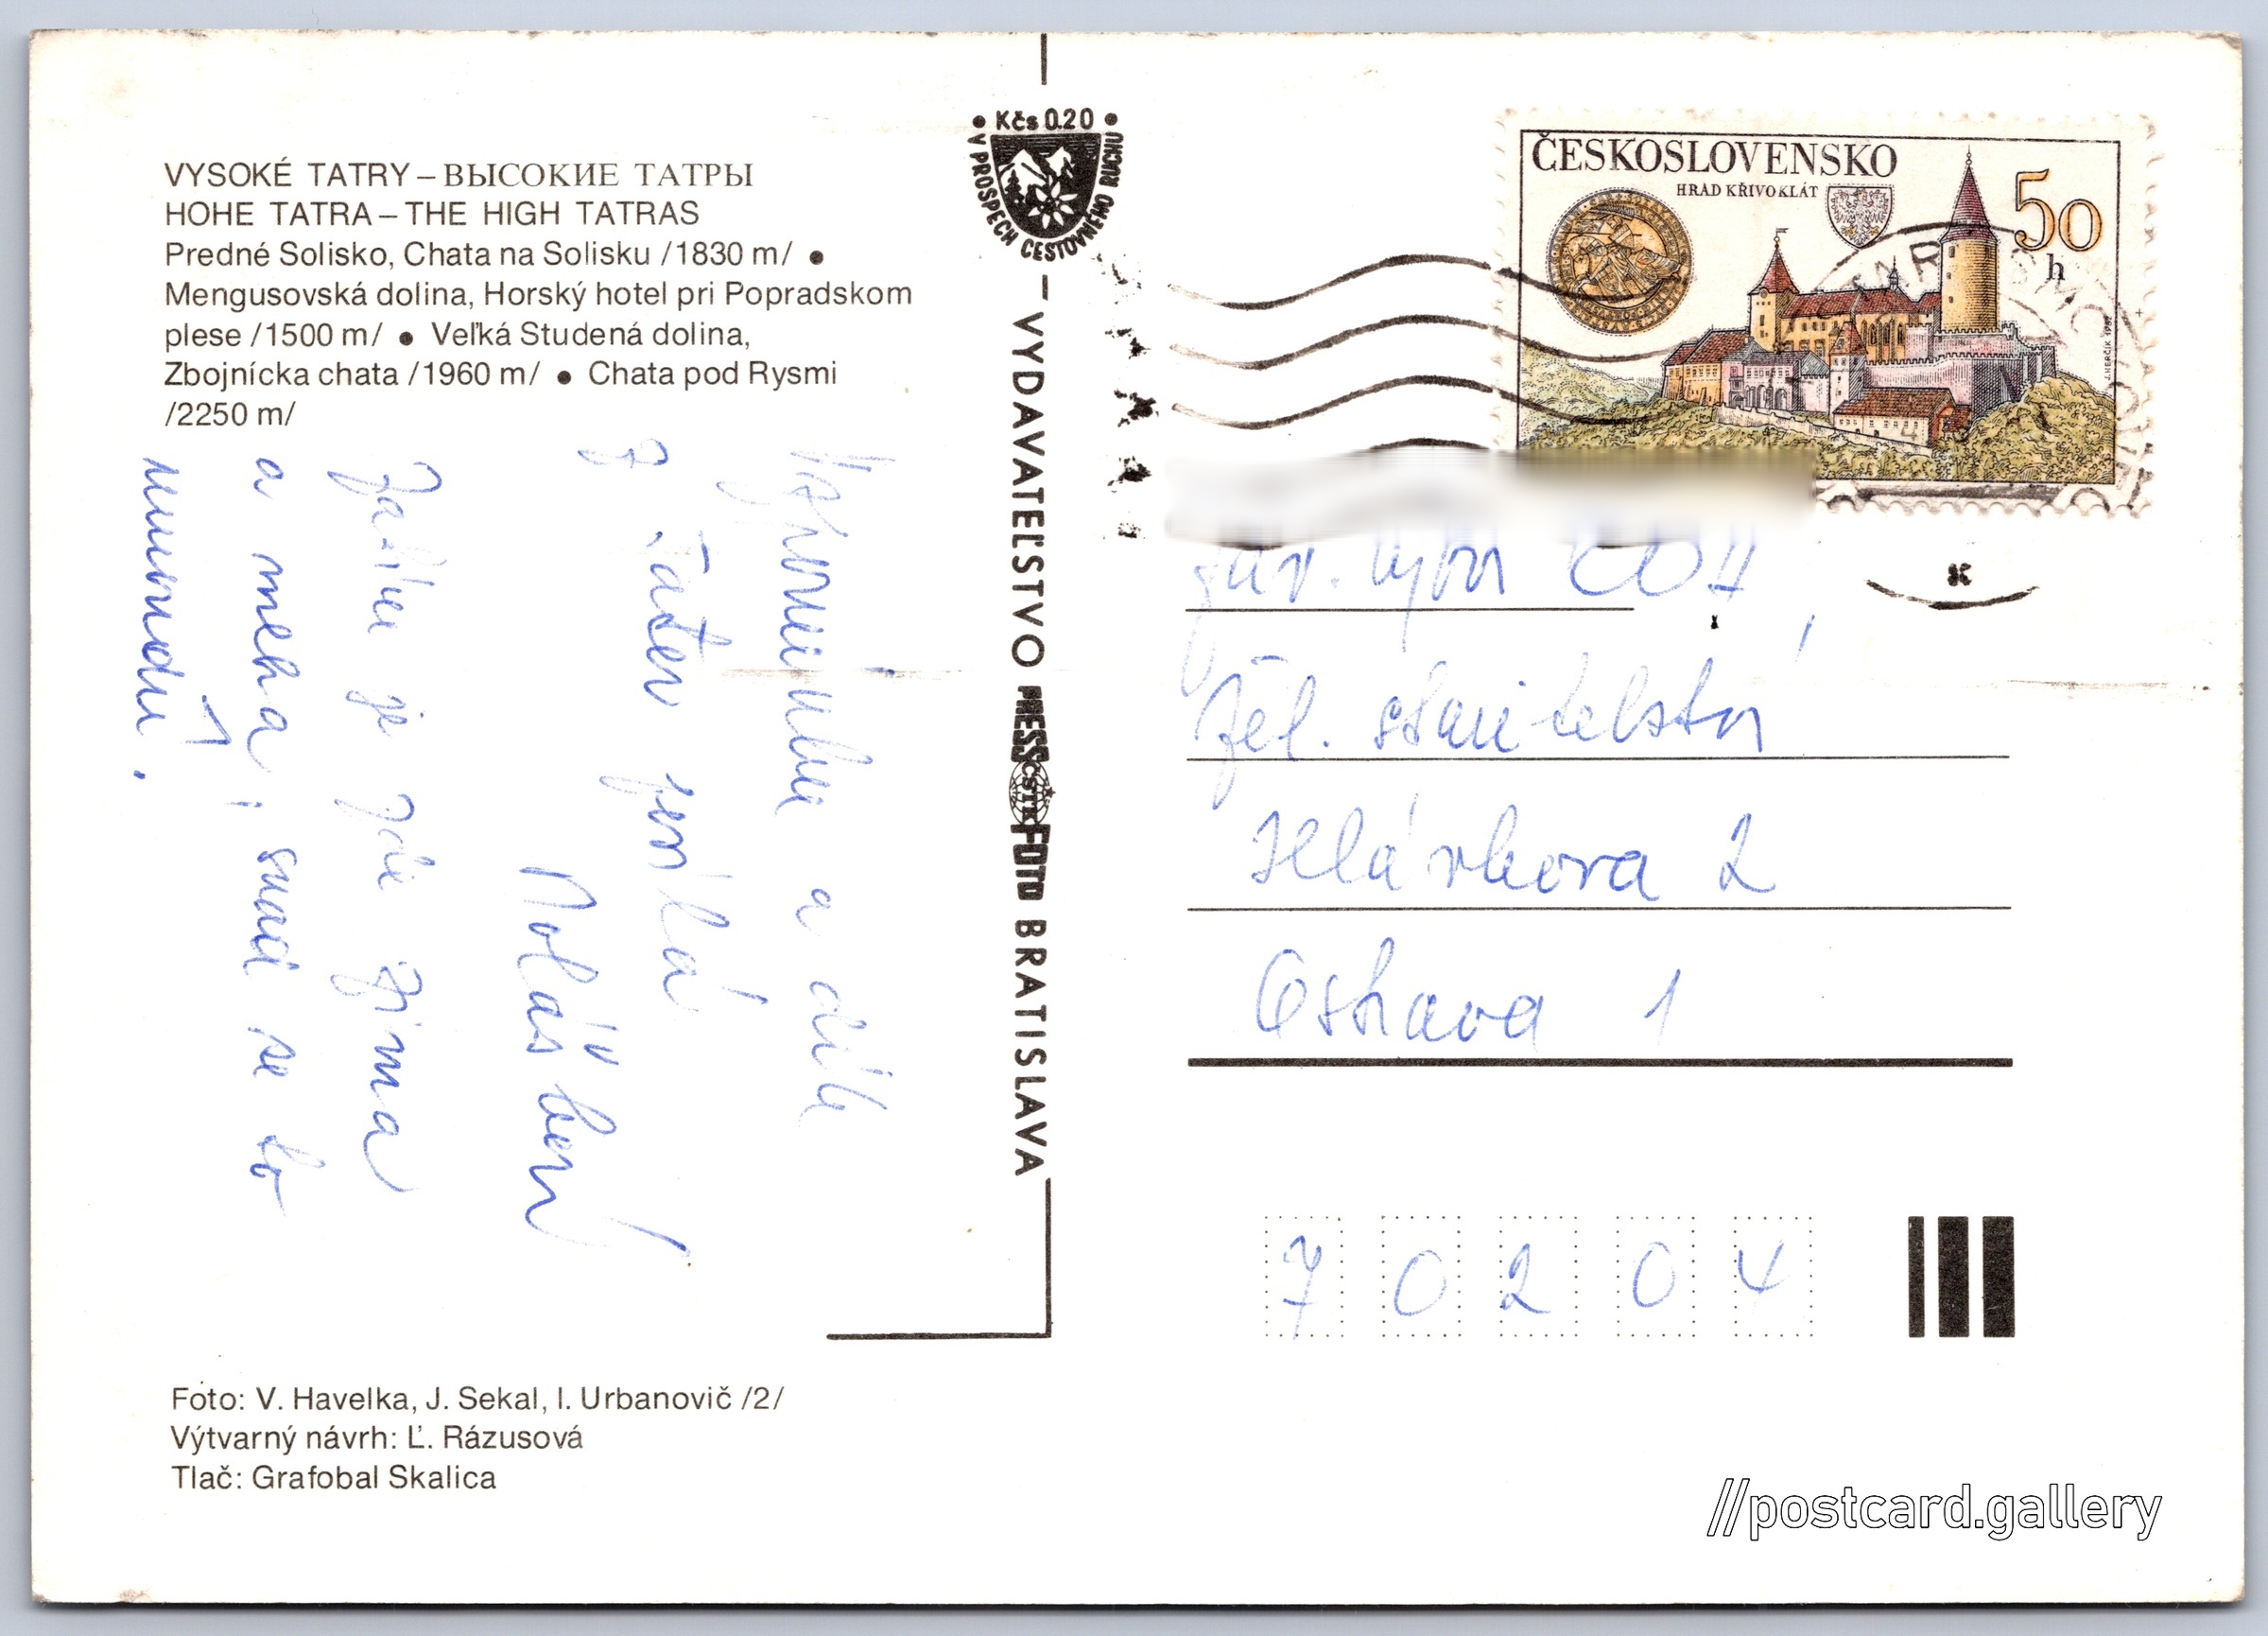 VYSOKÉ TATRY – ВЫСОКИЕ ТАТРЫ
HOHE TATRA – THE HIGH TATRAS
Predné Solisko, Chata na Solisku /1830 m/ ●
Mengusovská dolina, Horský hotel pri Popradskom
plese /1500 m/ ● Veľká Studená dolina,
Zbojnícka chata /1960 m/ ● Chata pod Rysmi
/2250 m/
Vzpomínku a dík
z Tater posílá
Jaksi je zde zima
a mlha, snad se to
Foto: V. Havelka, J. Sekal, I. Urbanovič /2/
Výtvarný návrh: Ľ. Rázusová
Tlač: Grafobal Skalica
● Kčs 0.20 ●
V PROSPECH CESTOVNÉHO RUCHU
– VYDAVATEĽSTVO PRESSFOTO BRATISLAVA
ČSTK
ČESKOSLOVENSKO
HRAD KŘIVOKLÁT
50
h
záv. výbor ROH,
žel. stavitelství
Hlávkova 2
Ostrava 1
70204
//postcard.gallery